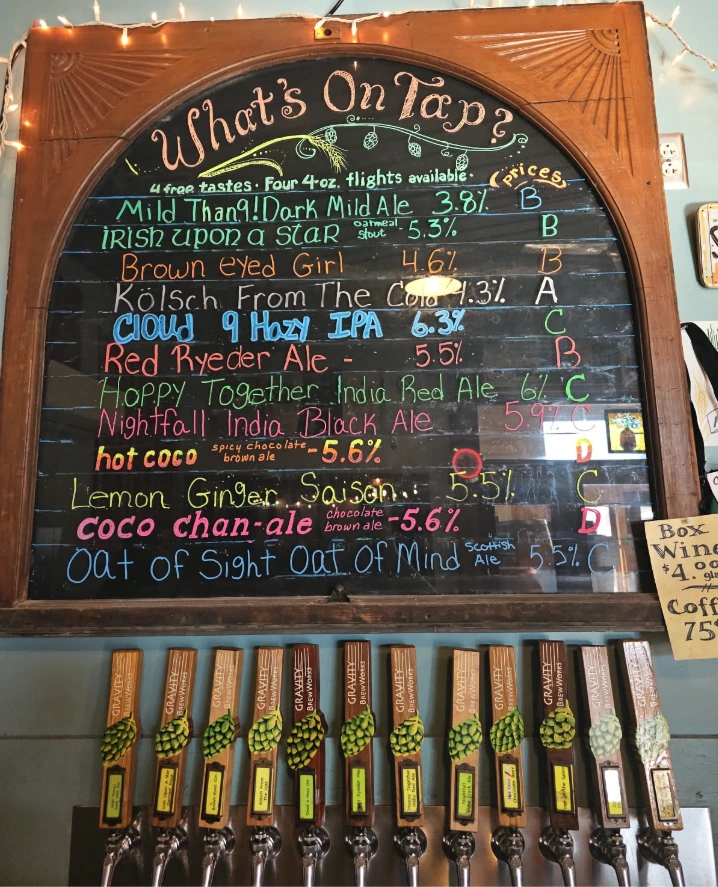 What's On Tap?
4 free tastes · Four 4-oz. flights available ·
(prices)
Mild Than9! Dark Mild Ale 3.8% B
iRisH upon a staR oatmeal stout 5.3% B
Brown eyed Girl 4.6% B
Kölsch From The Cold 4.3% A
Cloud 9 Hazy IPA 6.3% C
Red Ryeder Ale - 5.5% B
Hoppy Together India Red Ale 6% C
Nightfall India Black Ale 5.9% C
hot coco spicy chocolate brown ale -5.6% D
Lemon Ginger Saison 5.5% C
coco chan-ale chocolate brown ale -5.6% D
Oat of Sight Oat Of Mind Scottish Ale 5.5% C
Box
Wine
$4.00
Coff
75
GRAVITY BREWWORKS
GRAVITY BREWWORKS
GRAVITY BREWWORKS
GRAVITY BREWWORKS
GRAVITY BREWWORKS
GRAVITY BREWWORKS
GRAVITY BREWWORKS
GRAVITY BREWWORKS
GRAVITY BREWWORKS
GRAVITY BREWWORKS
GRAVITY BREWWORKS
GRAVITY BREWWORKS